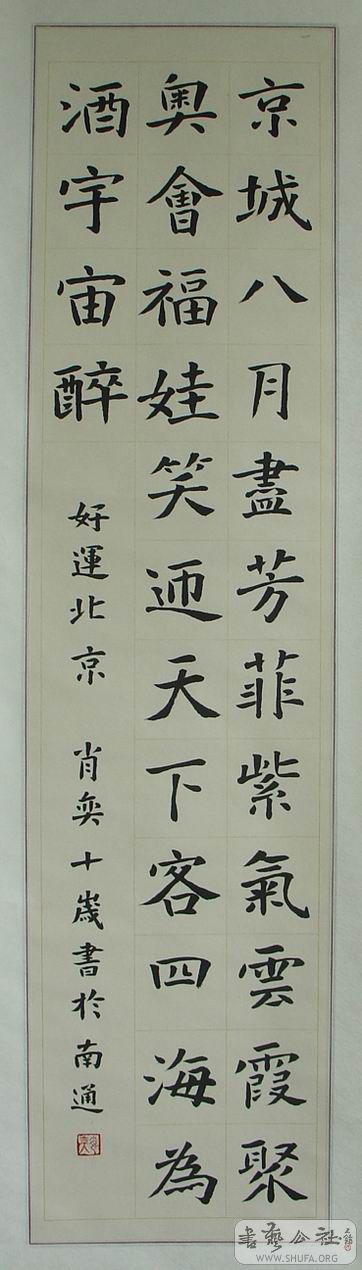 京城八月盡芳菲紫氣雲霞聚
奥會福娃笑迊天下客四海為
酒宇宙醉
好運北京 肖奕十歲書於南通
書藝公社
WWW.SHUFA.ORG